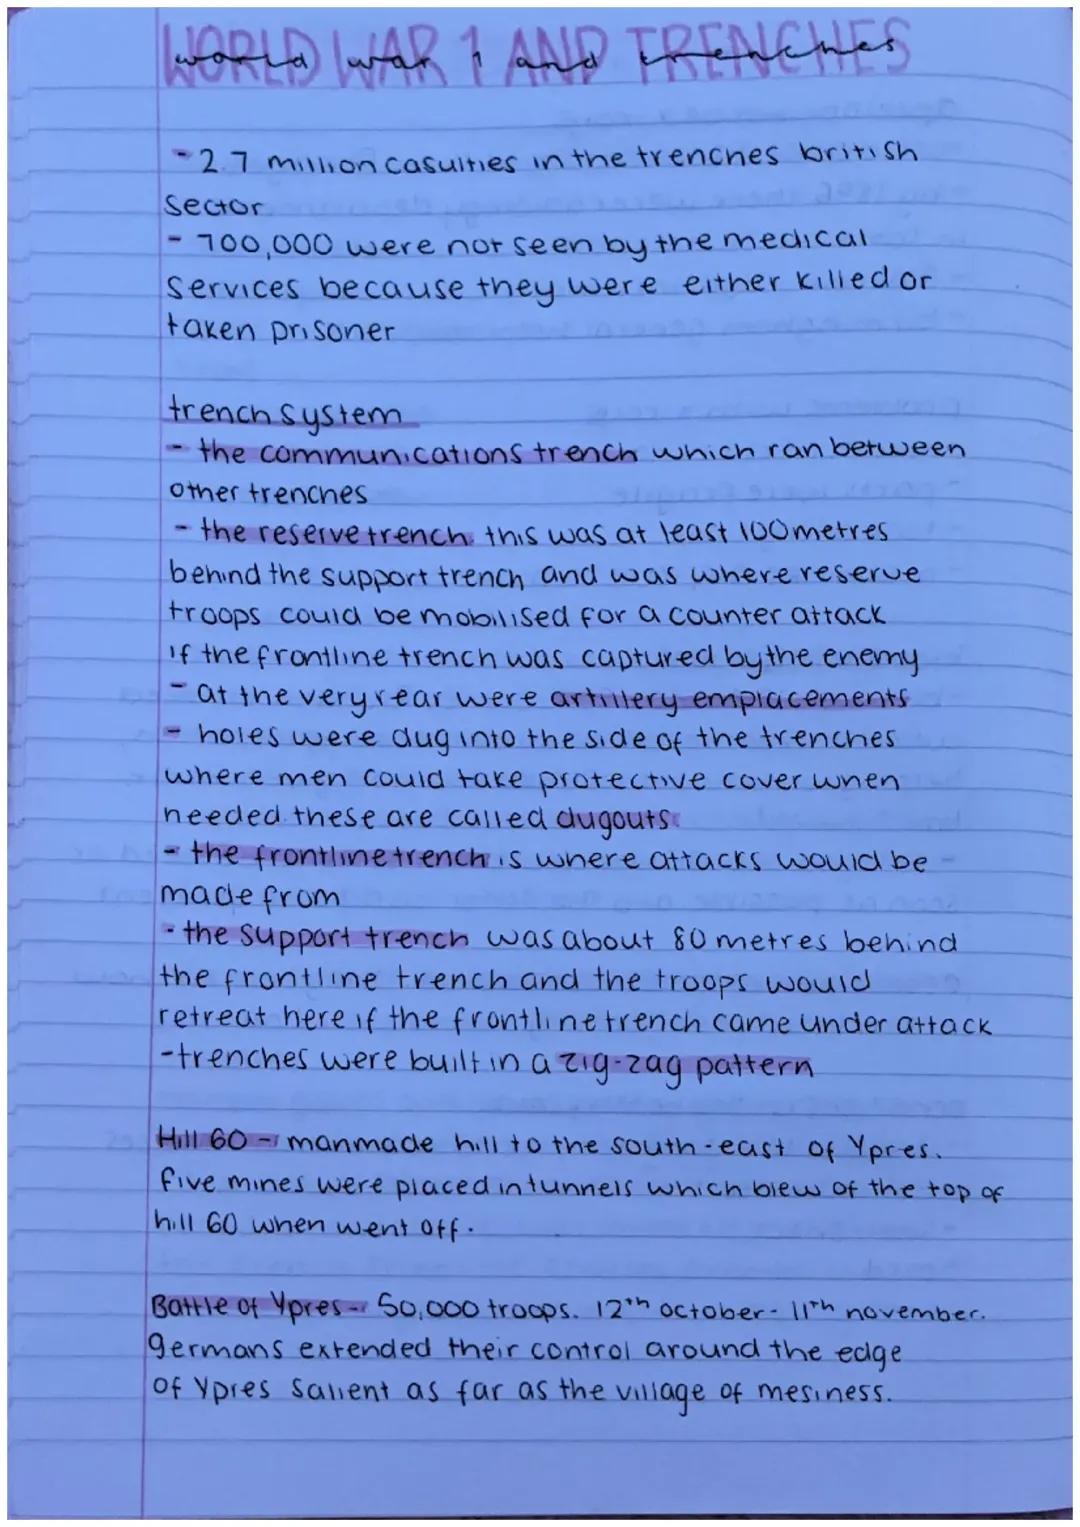 WORLD WAR 1 AND TRENCHES
world war 1 and trenches
- 2.7 million casulties in the trenches british
sector
- 700,000 were not seen by the medical
services because they were either killed or
taken prisoner
trench system
- the communications trench which ran between
other trenches
- the reserve trench. this was at least 100 metres
behind the support trench and was where reserve
troops could be mobilised for a counter attack
if the frontline trench was captured by the enemy
- at the very rear were artillery emplacements
- holes were dug into the side of the trenches
where men could take protective cover when
needed. these are called dugouts.
- the frontline trench is where attacks would be
made from
- the support trench was about 80 metres behind
the frontline trench and the troops would
retreat here if the frontline trench came under attack
- trenches were built in a zig-zag pattern
Hill 60 - manmade hill to the south-east of Ypres.
five mines were placed in tunnels which blew of the top of
hill 60 when went off.
Battle of Ypres - 50,000 troops. 12th october - 11th november.
germans extended their control around the edge
of Ypres Salient as far as the village of mesiness.